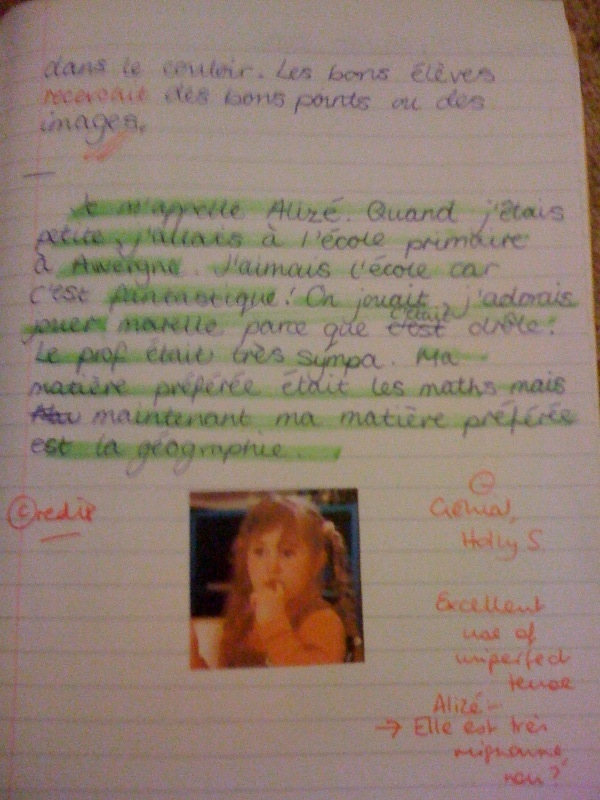 dans le couloir. Les bons élèves
recevait des bons points ou des
images.
Je m'appelle Alizé. Quand j'étais
petite, j'allais à l'école primaire
à Auvergne. J'aimais l'école car
c'est fantastique! On jouait, j'adorais
jouer marelle parce que c'est c'était drôle!
Le prof était très sympa. Ma
matière préférée était les maths mais
maintenant ma matière préférée
est la géographie.
Credit
Génial,
Holly S.
Excellent
use of
imperfect
tense
Alizé -
→ Elle est très
mignonne,
non?